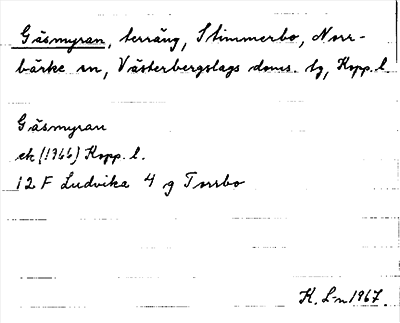 Gåsmyran, terräng, Stimmerbo, Norr-
bärke sn, Västerbergslags doms. tg, Kopp. l.
Gåsmyran
ek (1966) Kopp. l.
12 F Ludvika 4 g Torrbo
K. L-n 1967.